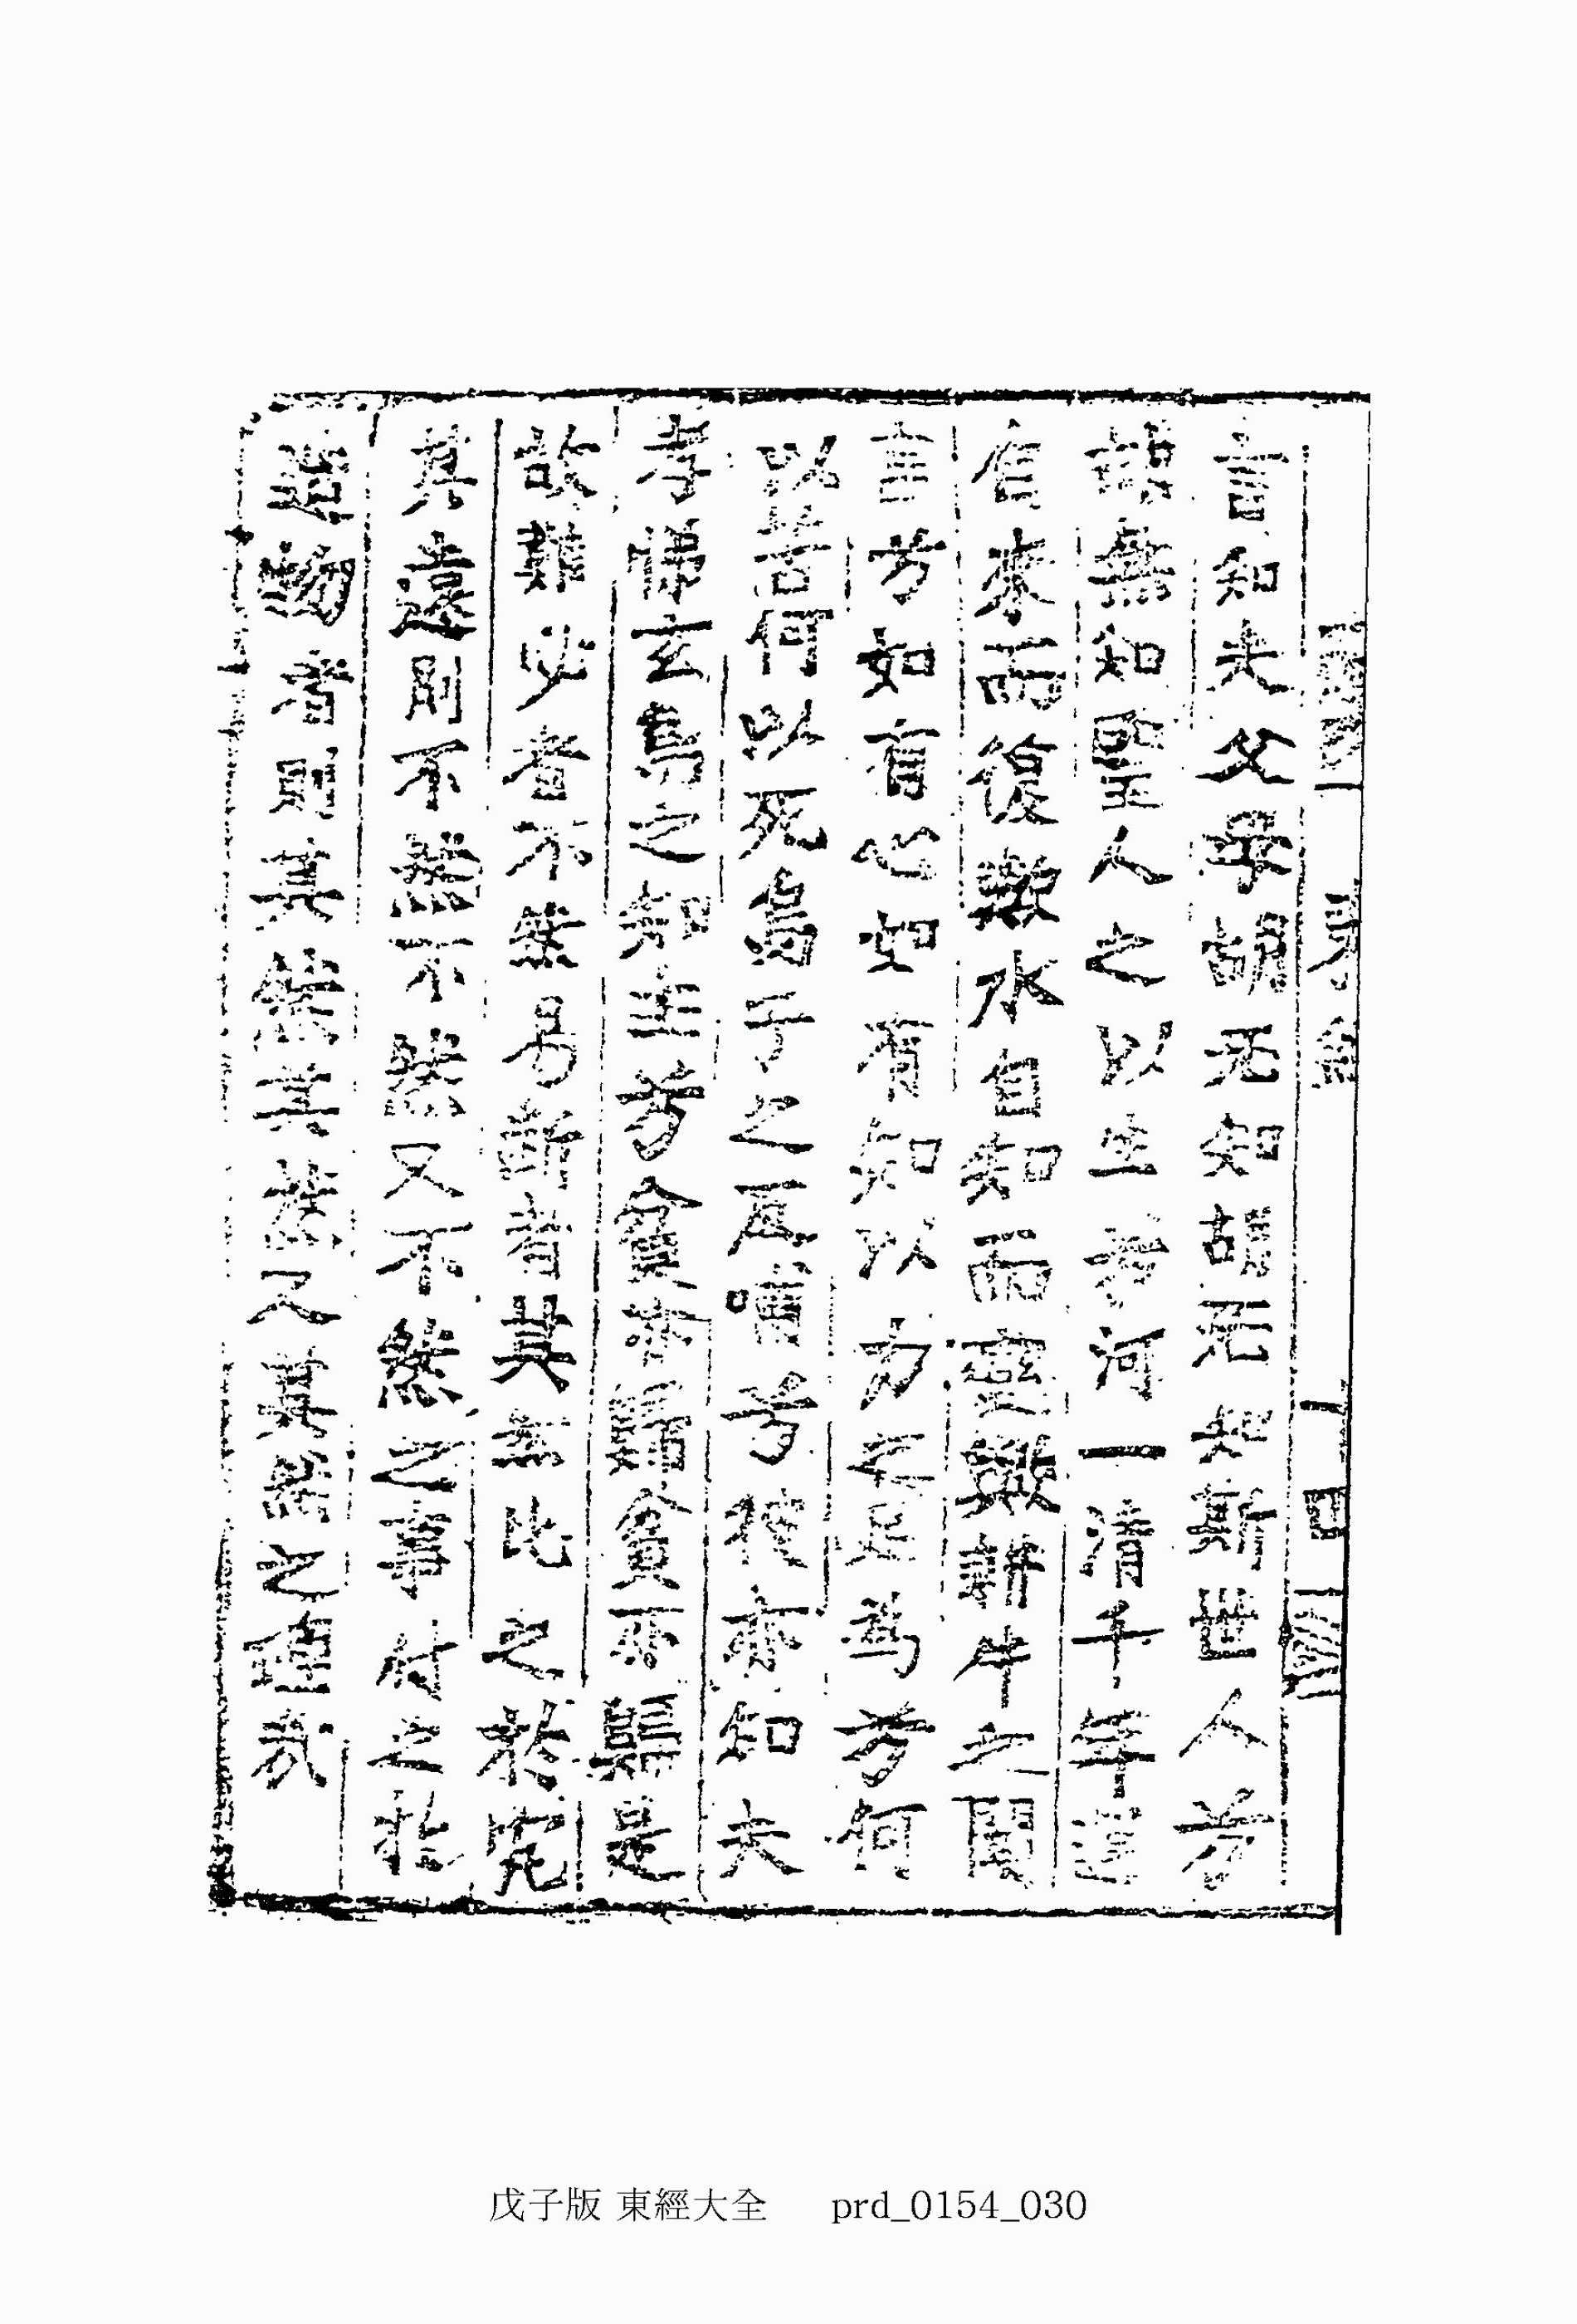 言知夫父母胡无知胡无知斯世人兮
胡無知聖人之以生兮河一清千年運
自來而復歟水自知而變歟耕牛之聞
言兮如有心如有知以力之足爲兮何
以苦何以死烏子之反哺兮彼亦知夫
孝悌玄鳥之知主兮貧亦歸貧亦歸是
故難必者不然易斷者其然比之於究
其遠則不然不然又不然之事付之於
造物者則其然其然又其然之理哉
戊子版 東經大全 prd_0154_030